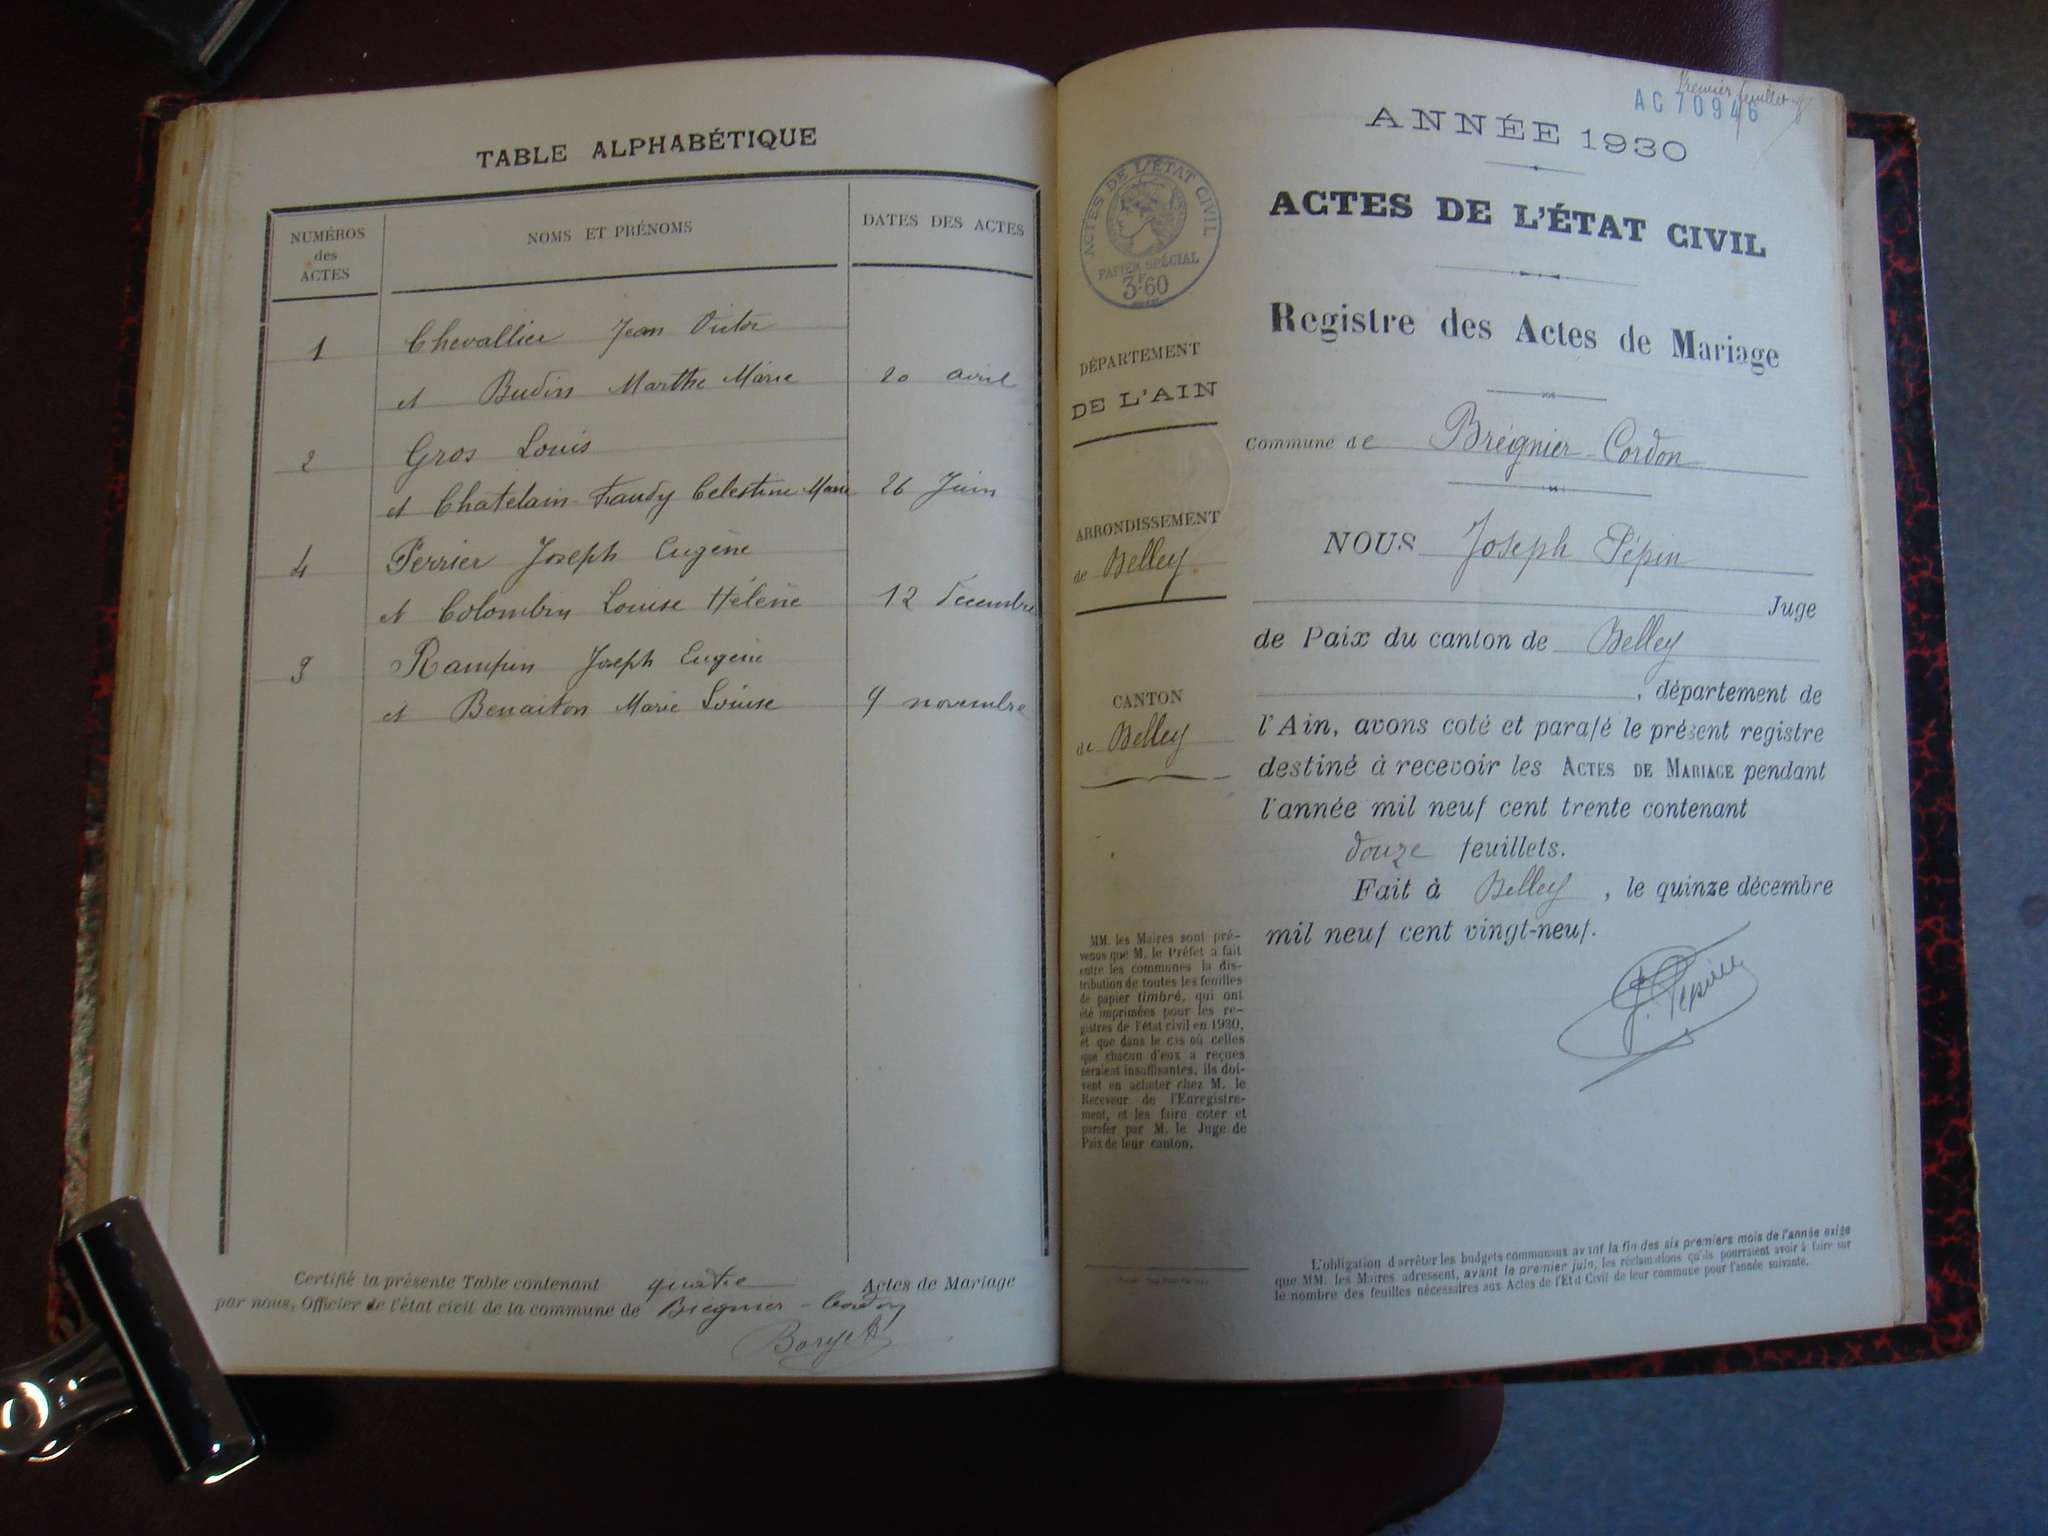 TABLE ALPHABÉTIQUE
NUMÉROS
des
ACTES
NOMS ET PRÉNOMS
DATES DES ACTES
1 Chevallier Jean Victor
et Budin Marthe Marie 20 avril
2 Gros Louis
et Chatelain Célestine Marie 26 Juin
4 Perrier Joseph Eugène
et Colombin Louise Hélène 12 décembre
3 Rampin Joseph Eugène
et Marie Louise 9 novembre
Certifié la présente Table contenant quatre Actes de Mariage
par nous, Officier de l'état civil de la commune de Brégnier-Cordon
Premier feuillet
AC70946
ANNÉE 1930
ACTES DE L'ÉTAT CIVIL
Registre des Actes de Mariage
ACTES DE L'ÉTAT CIVIL
PAPIER SPÉCIAL
3F60
DÉPARTEMENT
DE L'AIN
ARRONDISSEMENT
de Belley
CANTON
de Belley
MM. les Maires sont pré-
venus que M. le Préfet a fait
entre les communes la dis-
tribution de toutes les feuilles
de papier timbré, qui ont
été imprimées pour les re-
gistres de l'état civil en 1930,
et que dans le cas où celles
que chacun d'eux a reçues
seraient insuffisantes, ils doi-
vent en acheter chez M. le
Receveur de l'Enregistre-
ment, et les faire coter et
parafer par M. le Juge de
Paix de leur canton.
Commune de Brégnier-Cordon
NOUS Joseph Pépin
Juge
de Paix du canton de Belley
, département de
l'Ain, avons coté et parafé le présent registre
destiné à recevoir les ACTES DE MARIAGE pendant
l'année mil neuf cent trente contenant
douze feuillets.
Fait à Belley, le quinze décembre
mil neuf cent vingt-neuf.
J. Pépin
L'obligation d'arrêter les budgets communaux avant la fin des six premiers mois de l'année exige
que MM. les Maires adressent, avant le premier juin, les réclamations qu'ils pourraient avoir à faire sur
le nombre des feuilles nécessaires aux Actes de l'Etat Civil de leur commune pour l'année suivante.